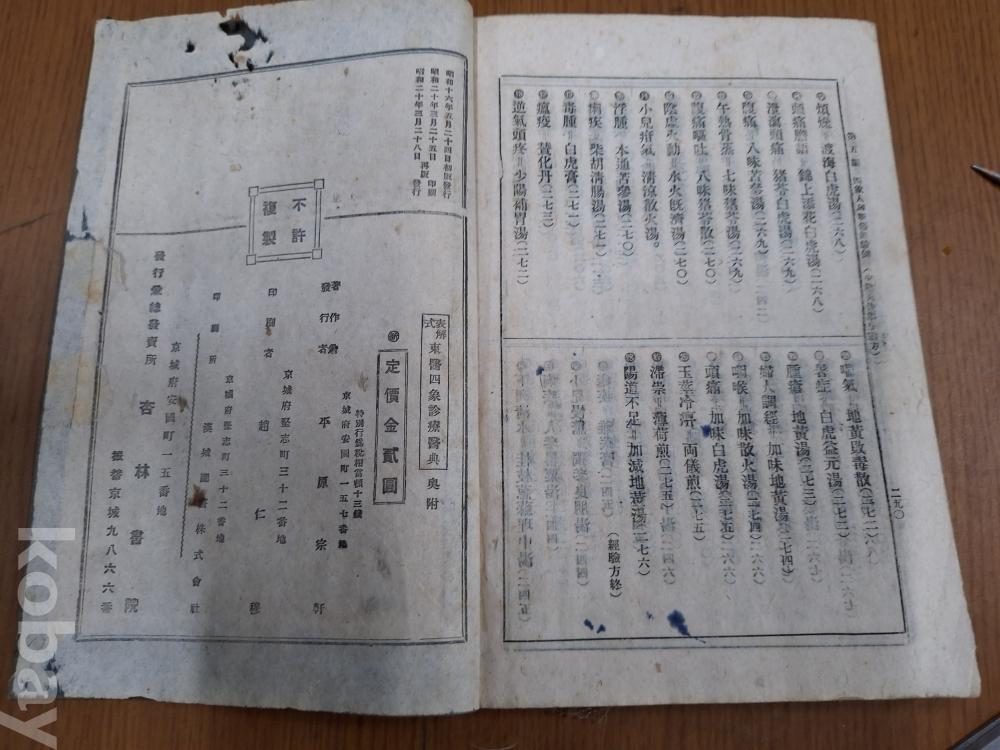 二九〇
煩燥‖渡海白虎湯(二六八)
頭痛譫語‖錦上添花白虎湯(二六八)
泄瀉頭痛‖猪苓白虎湯(二六九)
腹痛‖八味苦參湯(二六九)
午熱骨蒸‖七味猪苓湯(二六九)
腹痛嘔吐‖八味猪苓散(二七〇)
陰虛火動‖水火既濟湯(二七〇)
小兒疳氣‖清涼散火湯。
浮腫‖木通苦參湯(二七〇)
痢疾‖柴胡清腸湯(二七一)
毒腫‖白虎膏(二七一)
瘟疫‖賛化丹(二七三)
逆氣頭疼‖少陽補胃湯(二七二)
地黃敗毒散(二七二)
暑症‖白虎益元湯(二七二)
腫瘡‖地黃湯(二七三)
婦人調經‖加味地黃湯(二七四)
咽喉‖加味散火湯(二七四)
頭痛‖加味白虎湯(二七五)
玉莖冷濕‖両儀煎(二七五)
滯祟‖薄荷煎(二七五)
陽道不足‖加減地黃湯(二七六)
(經驗方終)
表解式 東醫四象診療醫典 奥附
㊞ 定價金貳圓
特別行爲稅相當額十三錢
京城府安國町一五七番地
著作兼發行者 平原宗軒
京城府堅志町三十二番地
印刷者 趙仁穆
京城府堅志町三十二番地
印刷所 漢城圖書株式會社
京城府安國町一五番地
發行兼總發賣所 杏林書院
振替京城九八六六番
不許複製
昭和十六年五月二十四日初版發行
昭和二十年三月二十五日 印刷
昭和二十年三月二十八日 再版發行
kobay